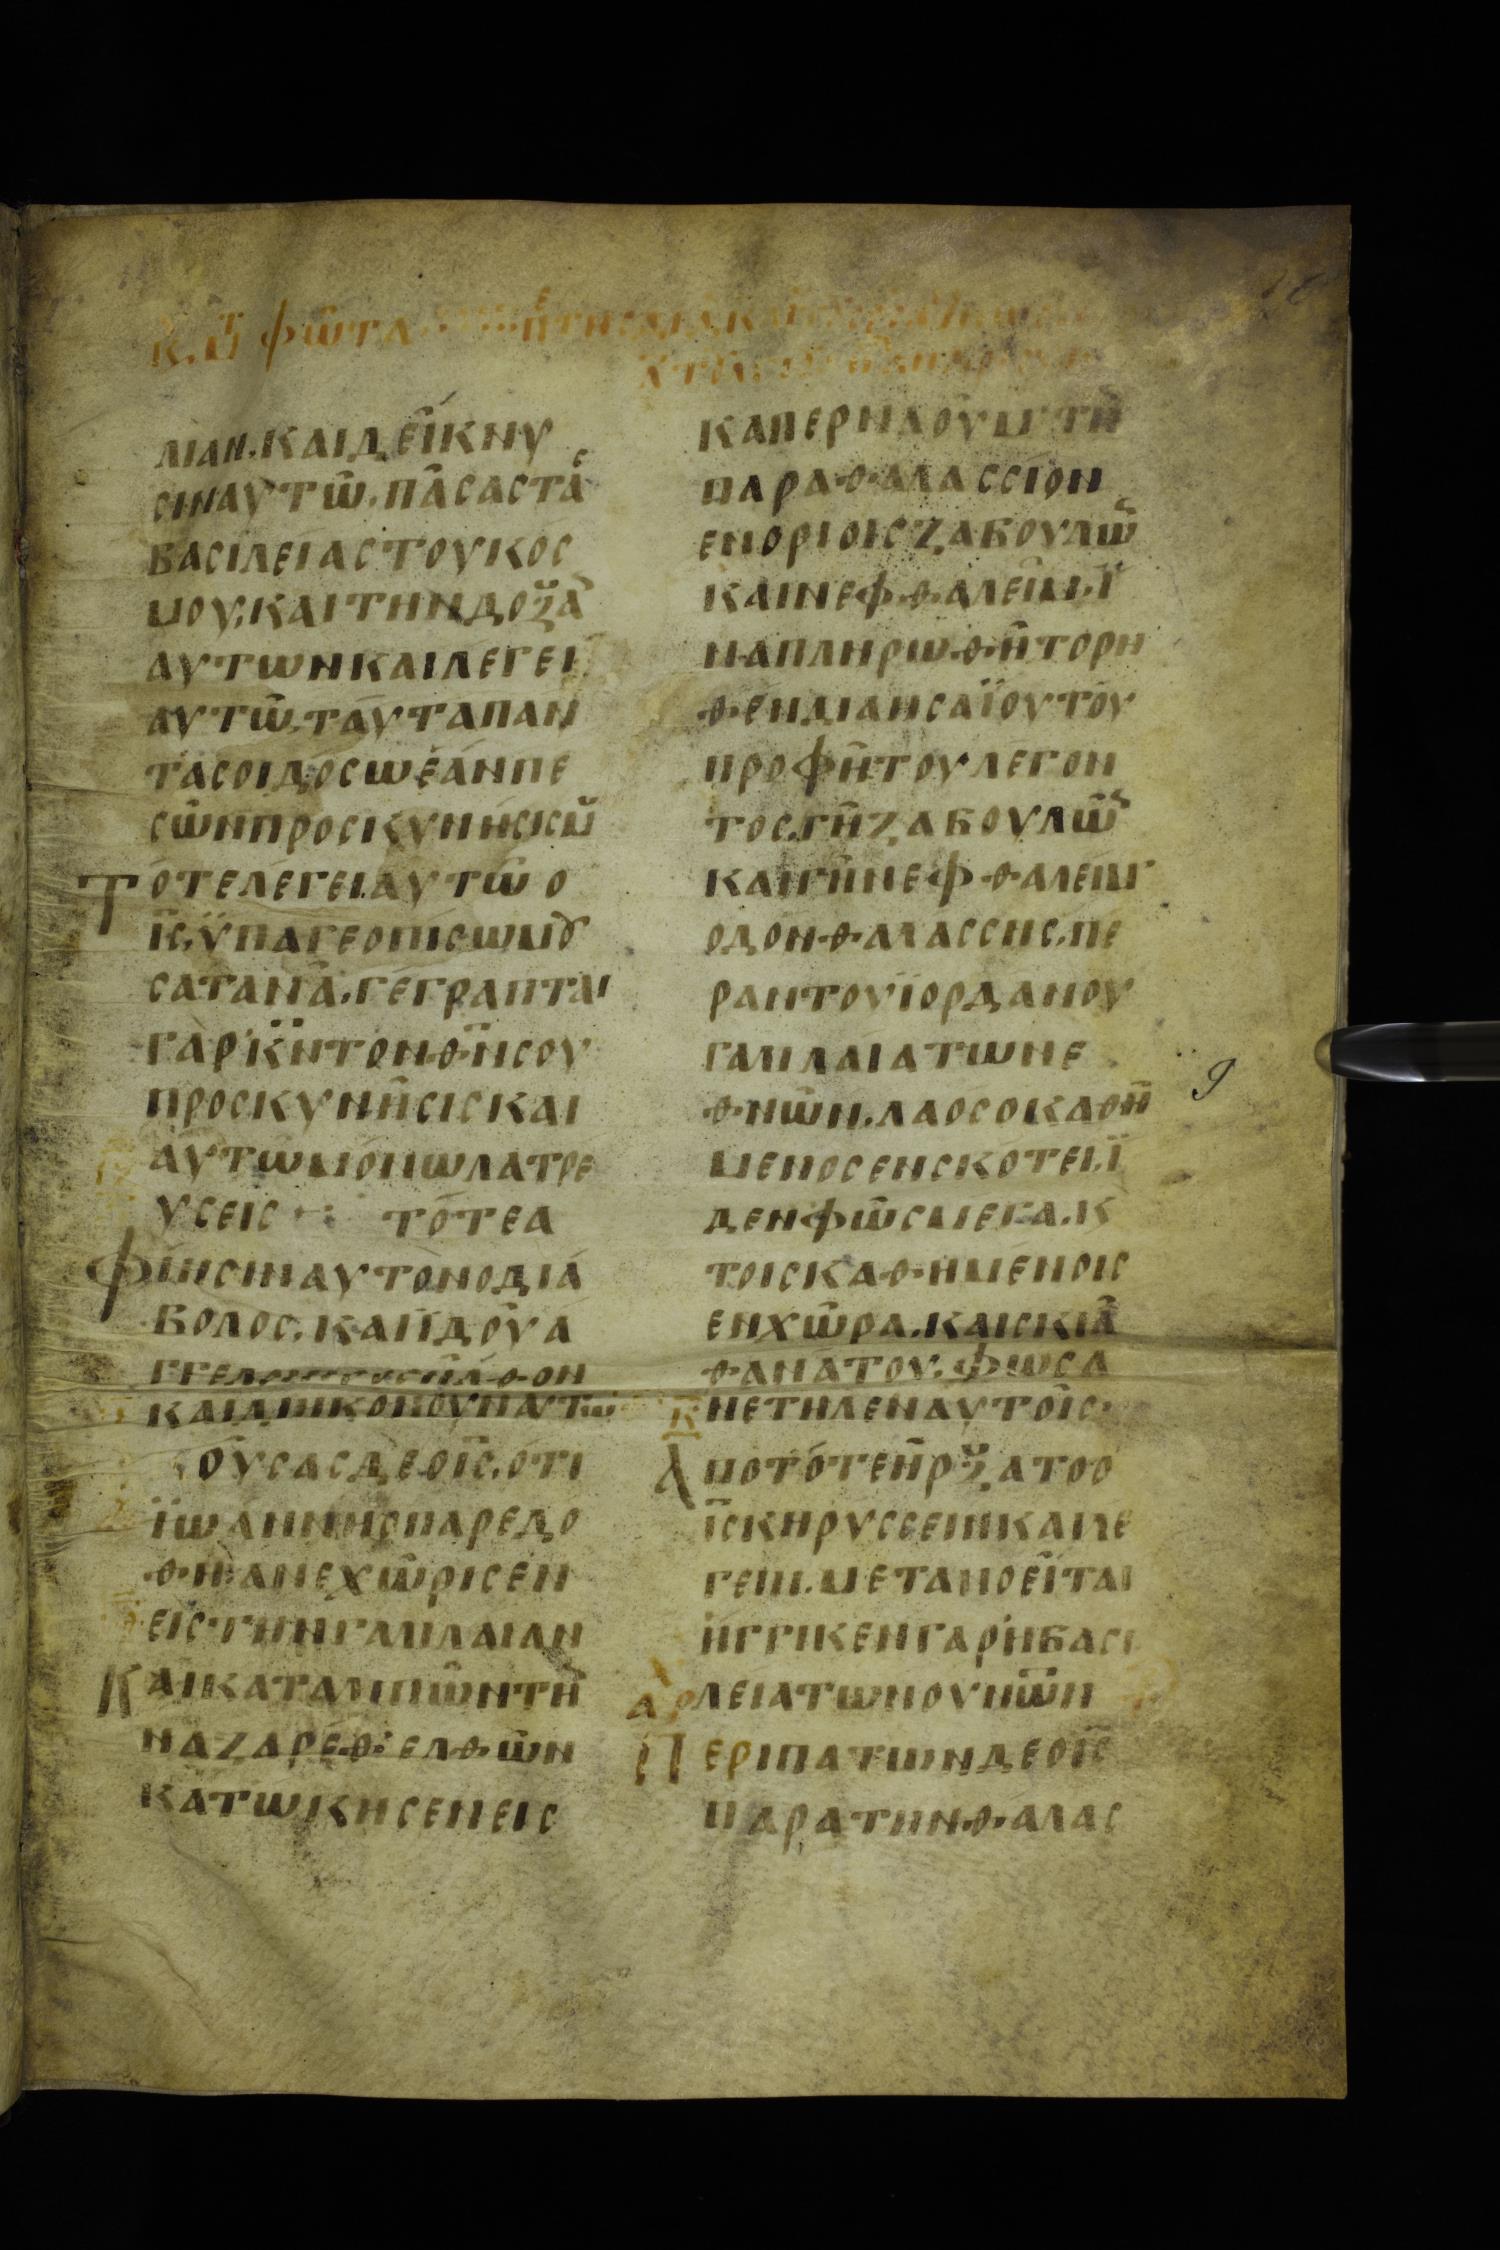 Κ. Μ Τ ΦΩΤΑ
ΛΙΑΝ. ΚΑΙ ΔΕΙΚΝΥ
ΣΙΝ ΑΥΤΩ. ΠΑΣΑΣ ΤΑΣ
ΒΑΣΙΛΕΙΑΣ ΤΟΥ ΚΟΣ
ΜΟΥ, ΚΑΙ ΤΗΝ ΔΟΞΑ
ΑΥΤΩΝ ΚΑΙ ΛΕΓΕΙ
ΑΥΤΩ. ΤΑΥΤΑ ΠΑΝ
ΤΑ ΣΟΙ ΔΟΣΩ ΕΑΝ ΠΕ
ΣΩΝ ΠΡΟΣΚΥΝΗΣΙΣ Μ
ΤΟΤΕ ΛΕΓΕΙ. ΑΥΤΩ Ο
ΙΣ, ΫΠΑΓΕ ΟΠΙΣΩ ΜΟΥ
ΣΑΤΑΝΑ. ΓΕΓΡΑΠΤΑΙ
ΓΑΡ ΚΝ ΤΟΝ ΘΝ ΣΟΥ
ΠΡΟΣΚΥΝΗΣΙΣ ΚΑΙ
ΑΥΤΩ ΜΟΝΩ ΛΑΤΡΕ
ΥΣΕΙΣ ΤΟΤΕ Α
ΦΙΗΣΙΝ ΑΥΤΟΝ Ο ΔΙΑ
ΒΟΛΟΣ. ΚΑΙ ΪΔΟΥ Α
ΓΓΕΛΟΙ ΠΡΟΣΗΛΘΟΝ
ΚΑΙ ΔΙΗΚΟΝΟΥΝ ΑΥΤΩ
ΟΥΣΑΣ ΔΕ Ο ΙΣ. ΟΤΙ
ΪΩΑΝΝΗΣ ΠΑΡΕΔΟ
ΘΗ ΑΝΕΧΩΡΙΣΕΝ
ΕΙΣ ΤΗΝ ΓΑΛΙΛΑΙΑΝ
ΚΑΙ ΚΑΤΑΛΙΠΩΝ ΤΗ
ΝΑΖΑΡΕΘ ΕΛΘΩΝ
ΚΑΤΩΚΗΣΕΝ ΕΙΣ
ΚΑΠΕΡΝΑΟΥΜ ΤΗ
ΠΑΡΑΘΑΛΑΣΣΙΟΝ
ΕΝ ΟΡΙΟΙΣ ΖΑΒΟΥΛΩ
ΚΑΙ ΝΕΦΘΑΛΕΙΜ. Ϊ
ΝΑ ΠΛΗΡΩΘΗ ΤΟ ΡΗ
ΘΕΝ ΔΙΑ ΗΣΑΪΟΥ ΤΟΥ
ΠΡΟΦΗΤΟΥ ΛΕΓΟΝ
ΤΟΣ. ΓΗ ΖΑΒΟΥΛΩ
ΚΑΙ ΓΗ ΝΕΦΘΑΛΕΙΜ
ΟΔΟΝ ΘΑΛΑΣΣΗΣ. ΠΕ
ΡΑΝ ΤΟΥ ΪΟΡΔΑΝΟΥ
ΓΑΛΙΛΑΙΑ ΤΩΝ Ε
ΘΝΩΝ. ΛΑΟΣ Ο ΚΑΘΗ
ΜΕΝΟΣ ΕΝ ΣΚΟΤΕΙ. Ϊ
ΔΕΝ ΦΩΣ ΜΕΓΑ. Κ
ΤΟΙΣ ΚΑΘΗΜΕΝΟΙΣ
ΕΝ ΧΩΡΑ. ΚΑΙ ΣΚΙΑ
ΘΑΝΑΤΟΥ. ΦΩΣ Α
ΝΕΤΗΛΕΝ ΑΥΤΟΙΣ
ΑΠΟ ΤΟΤΕ ΗΡΞΑΤΟ Ο
ΙΣ ΚΗΡΥΣΣΕΙΝ ΚΑΙ ΛΕ
ΓΕΙΝ. ΜΕΤΑΝΟΕΙΤΑΙ
ΗΓΓΙΚΕΝ ΓΑΡ Η ΒΑΣΙ
ΛΕΙΑ ΤΩΝ ΟΥΝΩΝ
ΠΕΡΙΠΑΤΩΝ ΔΕ Ο ΙΣ
ΠΑΡΑ ΤΗΝ ΘΑΛΑΣ
9